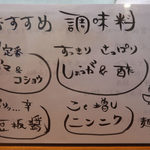 おすすめ 調味料
定番
マ & コショウ
すっきり さっぱり
しょうが & 酢
り…辛
豆板醤
こく増し
ニンニク
麺